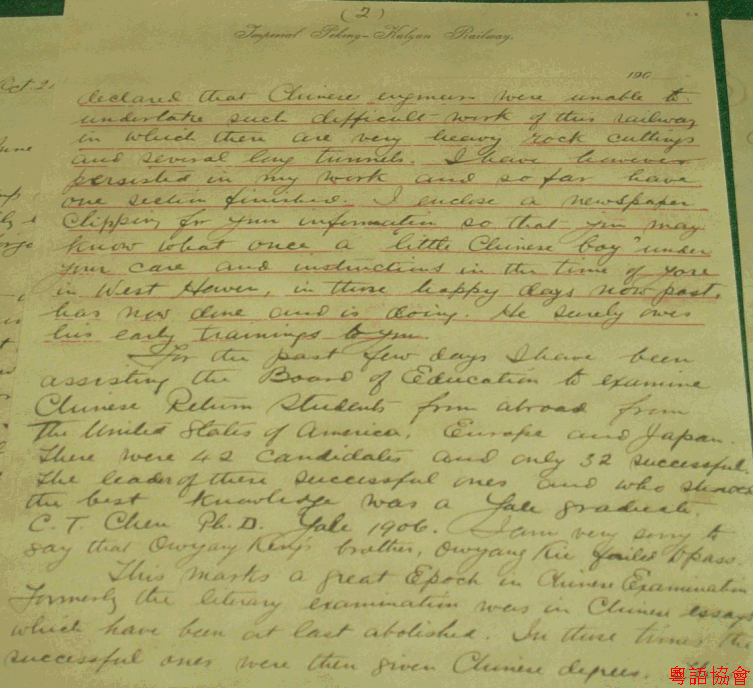 (2)
Imperial Peking-Kalgan Railway.
Oct 2
190
declared that Chinese engineers were unable to
undertake such difficult work of this railway
in which there are very heavy rock cuttings
and several long tunnels. I have however
persisted in my work and so far have
one section finished. I enclose a newspaper
clipping for your information so that you may
know what once a "little Chinese boy" under
your care and instructions in the time of yore
in West Haven, in those happy days now past,
has now done and is doing. He surely owes
his early trainings to you.
For the past few days I have been
assisting the Board of Education to examine
Chinese Return Students from abroad from
the United States of America, Europe and Japan.
There were 42 candidates and only 32 successful.
The leader of these successful ones and who showed
the best knowledge was a Yale graduate.
C. T. Chen Ph. D. Yale 1906. I am very sorry to
say that Owyang King's brother, Owyang Kie failed to pass.
This marks a great Epoch in Chinese Examination
Formerly the literary examination was in Chinese essays
which have been at last abolished. In those times the
successful ones were then given Chinese degrees.
粵語協會